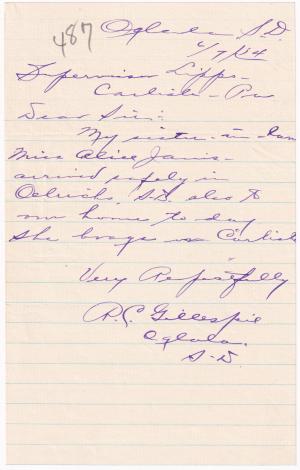 487
Oglala, S.D.
6/7/14
Supervisor Lipps -
Carlisle - Pa
Dear Sir:
My sister-in-law
Miss Alice Janis -
arrived safely in
Oelrichs, S.D. also to
our home to day
She Carlisle
Very Respectfully
R.C. Gillespie
Oglala.
S-D.